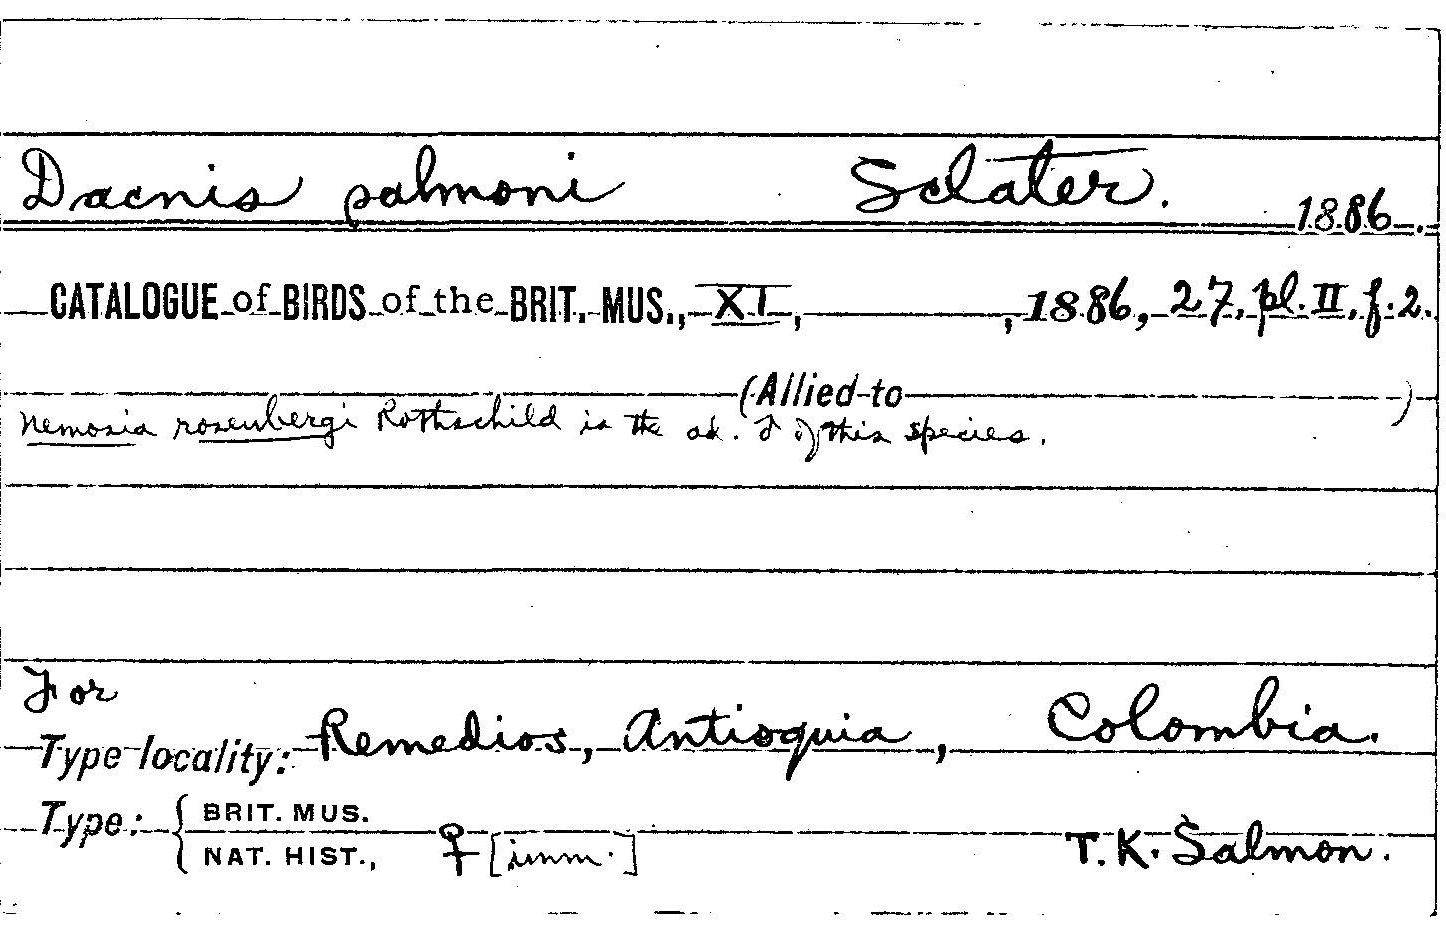 Dacnis salmoni Sclater. 1886.
CATALOGUE of BIRDS of the BRIT. MUS., XI, , 1886, 27, pl. II, f. 2.
(Allied to )
Nemosia rosenbergi Rothschild is the ad. ♂ of this species.
For
Type locality: Remedios, Antioquia, Colombia.
Type: { BRIT. MUS.
NAT. HIST., ♀ [imm.] T. K. Salmon.